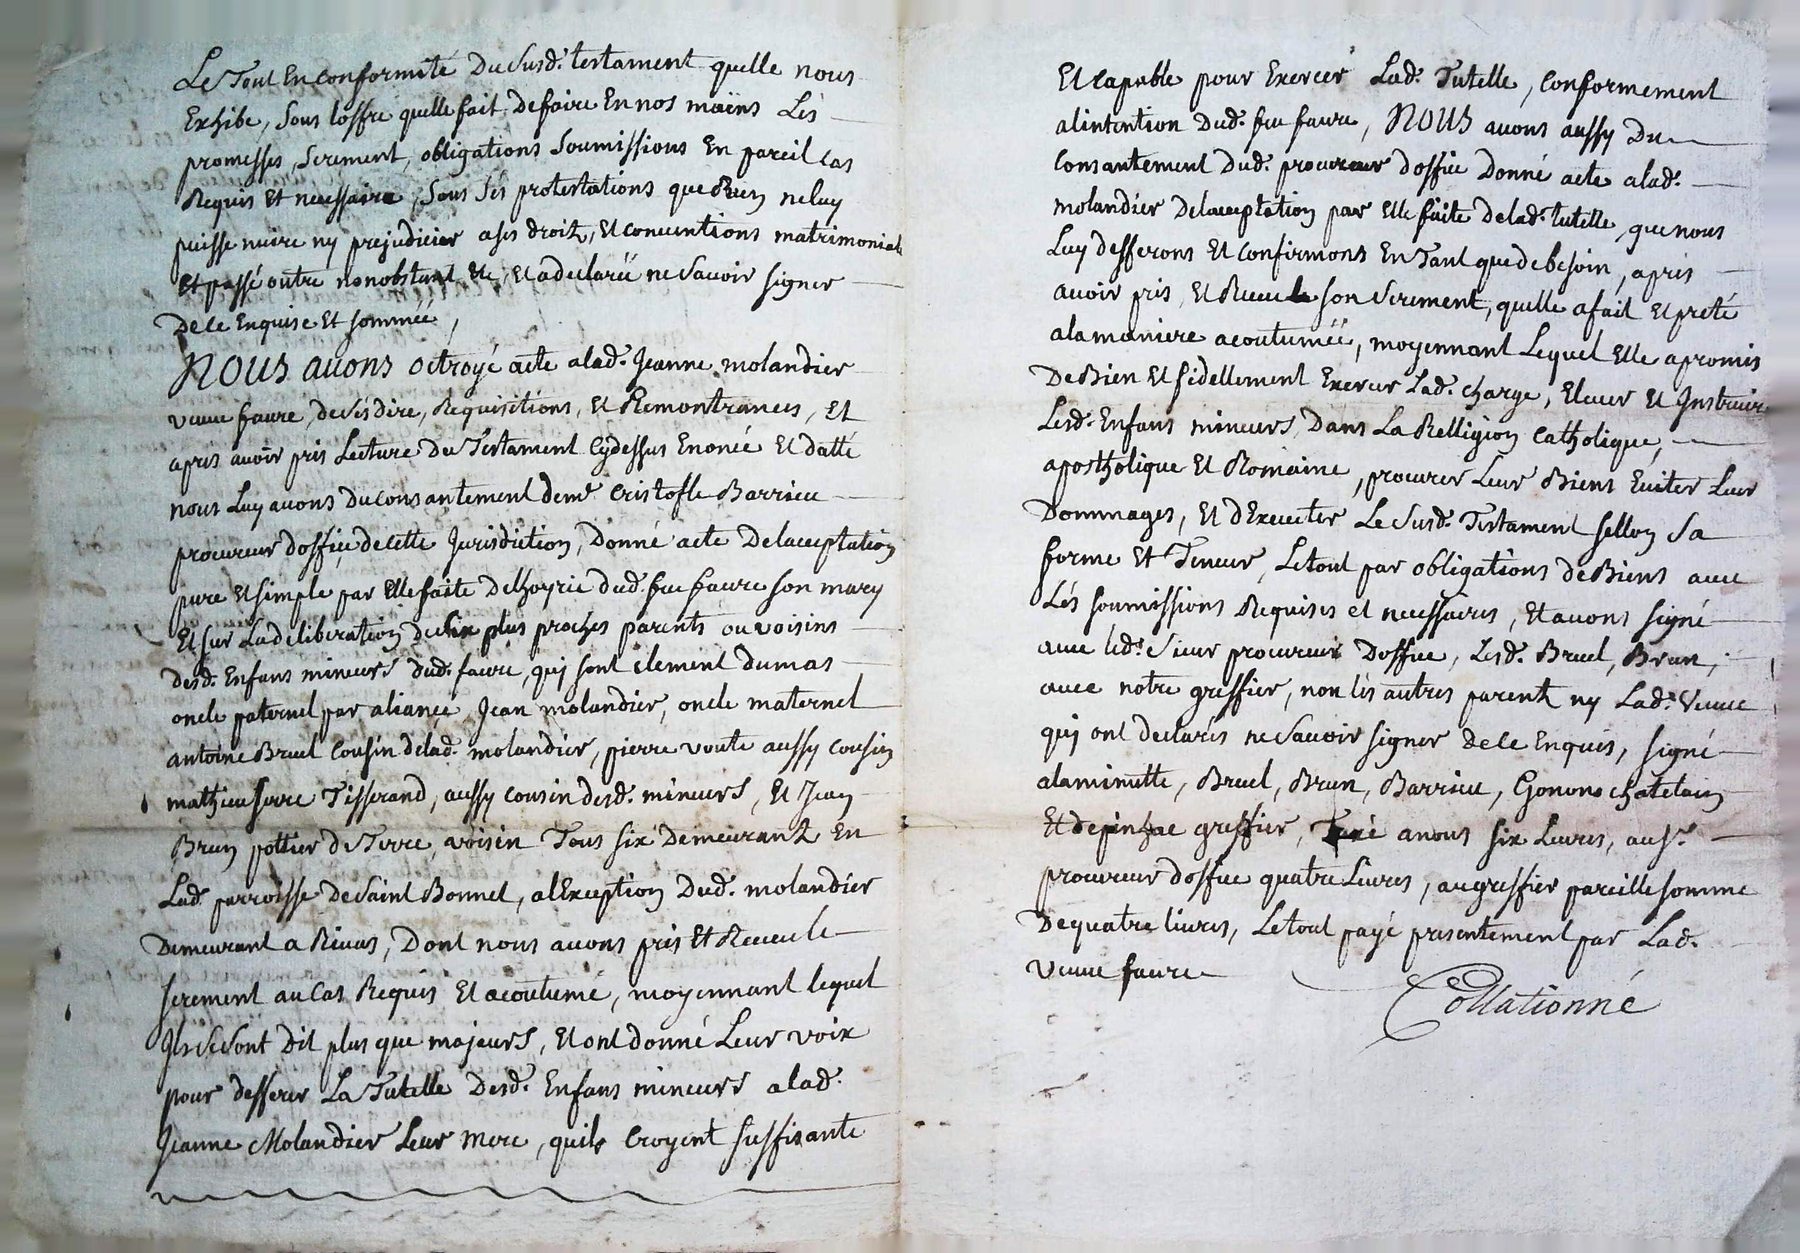 Le Tout En conformité Du susd. testament quelle nous
Exhibe, sous loffre quelle fait de faire En nos mains Les
promesses, serement, obligations soumissions En pareil cas
Requis Et necessaire, sous ses protestations que Rien ne luy
puisse nuire ny prejudicier a ses droitz, Et conventions matrimonial
Et passé outre nonobstant Etc, Et a declaréé ne scavoir signer
De ce Enquise Et sommée,
NOUS avons octroyé acte a lad. Jeanne molandier
veuve faure, de ses dire, Requisitions, Et Remontrances, Et
apres avoir pris Lecture du Testament Cydessus Enoncé Et datté
nous Luy avons du consantement de me cristofle Barrieu
procureur doffice de cette Jurisdiction, Donné acte De lacceptation
pure Et simple par Elle faite De lhoyrie dud. feu faure son mary
Et sur La deliberation de six plus proches parents ou voisins
desd. Enfans mineurs dud. faure, qui sont clement dumas
oncle paternel par aliance, Jean molandier, oncle maternel
antoine Bruel cousin de lad. molandier, pierre voute aussy cousin
mathieu serre Tisserand, aussy cousin desd. mineurs, Et Jean
Brun pottier de Terre, voisin Tous six Demeurantz En
Lad. parroisse de Saint Bonnet, a lException Dud. molandier
Demeurant a Rivas, Dont nous avons pris Et Receu le
serement au cas Requis Et acoutumé, moyennant lequel
Ils se sont Dit plus que majeurs, Et ont donné Leur voix
pour defferer La Tutelle Desd. Enfans mineurs a lad.
Jeanne Molandier Leur mere, quils croyent suffisante
Et capable pour Exercer Lad. Tutelle, conformement
a lintention dud. feu faure, NOUS avons aussy Du
consantement Dud. procureur doffice Donné acte a lad.
molandier De lacceptation par Elle faite de lad. tutelle, que nous
Luy defferons Et confirmons En Tant que de besoin, apres
avoir pris Et Receu le son serement, quelle a fait Et preté
a la maniere acoutuméé, moyennant Lequel Elle a promis
De Bien Et fidellement Exercer Lad. charge, Elever Et Instruire
Lesd. Enfans mineurs Dans La Relligion catholique,
apostholique Et Romaine, procurer Leur Biens Eviter Leur
Dommages, Et dExecuter Le susd. Testament sellon sa
forme Et Teneur, Le tout par obligations de Biens avec
Les soumissions Requises et necessaires, Et avons signé
avec led. sieur procureur Doffice, Lesd. Bruel, Brun,
avec notre greffier, non les autres parentz ny Lad. Veuve
qui ont declarés ne scavoir signer de ce Enquis, signé
a la minutte, Bruel, Brun, Barrieu, Gonon chatelain
Et depinhac greffier, Taxé a nous six Livres, au sr.
procureur doffice quatre Livres, au greffier pareille somme
De quatre livres, Le tout payé presentement par Lad.
veuve faure
Collationné